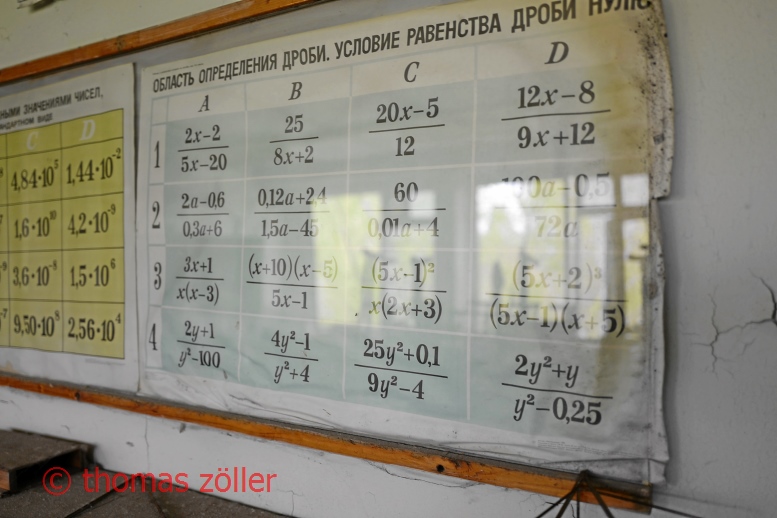 ННЫМИ ЗНАЧЕНИЯМИ ЧИСЕЛ,
СТАНДАРТНОМ ВИДЕ
C D
4,84·10⁵ 1,44·10⁻²
1,6·10¹⁰ 4,2·10⁻⁹
3,6·10⁻⁸ 1,5·10⁶
9,50·10⁸ 2,56·10⁴
ОБЛАСТЬ ОПРЕДЕЛЕНИЯ ДРОБИ. УСЛОВИЕ РАВЕНСТВА ДРОБИ НУЛЮ
A B C D
1 (2x−2)/(5x−20) 25/(8x+2) (20x−5)/12 (12x−8)/(9x+12)
2 (2a−0,6)/(0,3a+6) (0,12a+2,4)/(1,5a−45) 60/(0,01a+4) (100a−0,5)/72a
3 (3x+1)/(x(x−3)) ((x+10)(x−5))/(5x−1) (5x−1)²/(x(2x+3)) (5x+2)³/((5x−1)(x+5))
4 (2y+1)/(y²−100) (4y²−1)/(y²+4) (25y²+0,1)/(9y²−4) (2y²+y)/(y²−0,25)
© thomas zöller